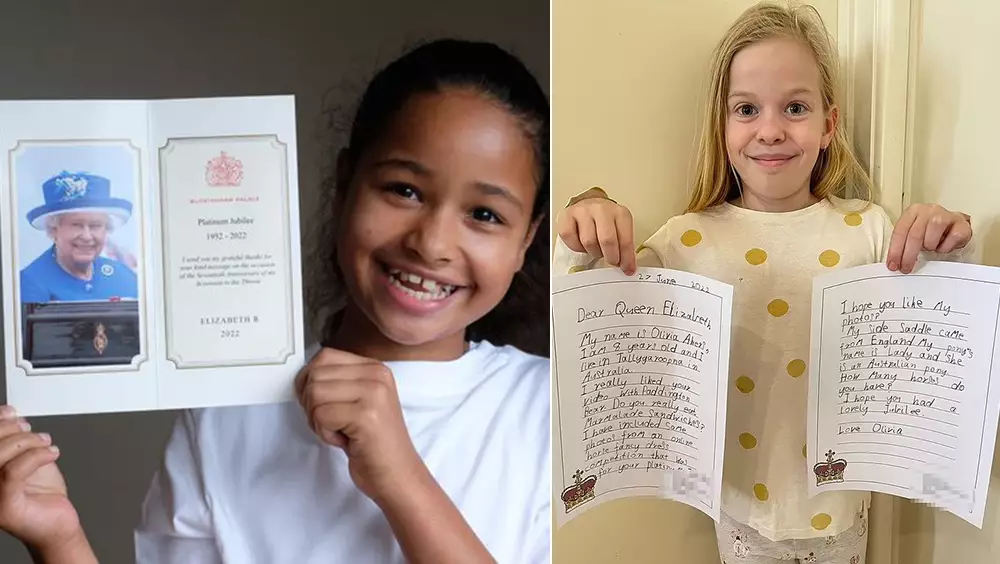 BUCKINGHAM PALACE
Platinum Jubilee
1952 - 2022
I send you my grateful thanks for
your kind message on the occasion
of the Seventieth Anniversary of my
Accession to the Throne
ELIZABETH R.
2022
27 June 2022
Dear Queen Elizabeth
My name is Olivia
I am 9 years old and I
live in Tallygaroopna in
Australia.
I really liked your
video with Paddington
Bear Do you really eat
Marmalade Sandwiches?
I have included some
photos from an online
horse fancy dress
competition that was
for your platin
I hope you like My
photos?
My Side Saddle came
from England My pony's
name is Lady and she
is an Australian pony
How Many horses do
you have?
I hope you had a
lovely Jubilee
Love Olivia